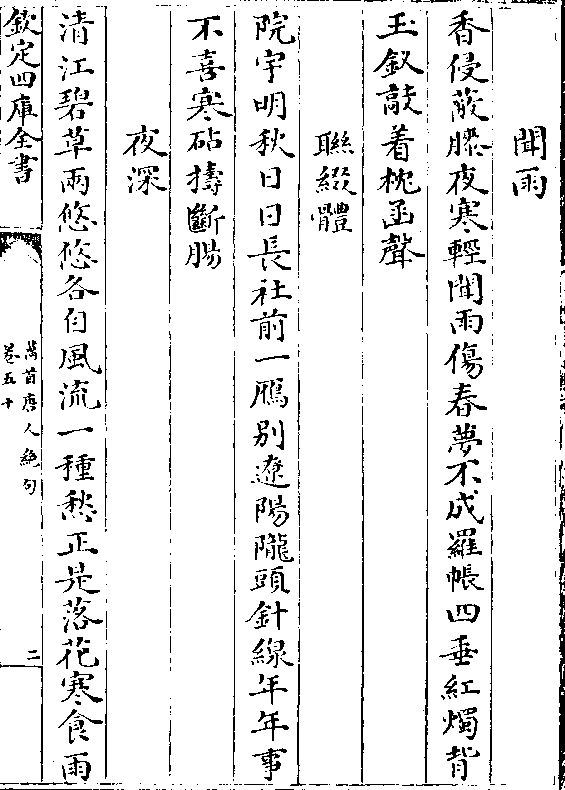 聞雨
香侵蔽膝夜寒輕聞雨傷春夢不成羅帳四垂紅燭背
玉釵敲着枕函聲
聯綴體
院宇明秋日日長社前一鴈別遼陽隴頭針線年年事
不喜寒砧擣斷腸
夜深
清江碧草兩悠悠各自風流一種愁正是落花寒食雨
欽定四庫全書
萬首唐人絶句
卷五十
二